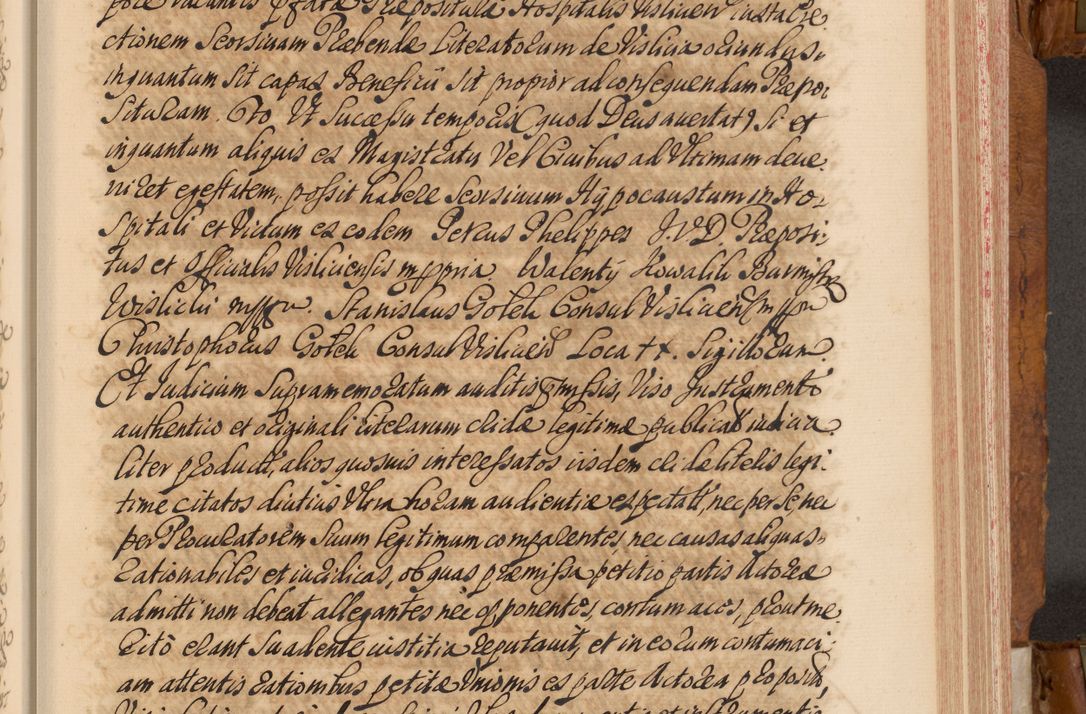 pore vacantis pfatæ Præposituræ Hospitalis Visliceñ iuxta Ere
ctionem Seorsivam Præbendæ Literatorum de Vislicia oriundus:
inquantum Sit capax Beneficii Sit propior ad consequendam Præpo:
Situram. Oto Vt Successu temporis (quod Deus auertat) Si et
inquantum aliquis ex Magistratu Vel Ciuibus ad Vltimam deue
niret egestatem, possit habere Seorsiuum Hypocaustum in Ho:
spitali et Victum ex eodem Petrus Phelippes J.V.D. Præposi:
tus et Officialis Visliciensis mppria Walenty Kowalik Burmistrz
Wislicki mppr. Stanislaus Gołek Consul Visliceñ mppr
Christophorus Gołek Consul Visliceñ Loca ++. Sigillorum.
Et Judicium Supramemoratum auditis pmissis, Viso Instrumento
authentico et originali literarum legitime publicat iudicia
liter product, alios quosuis interessatos iisdem literis legi:
time citatos diutius Vltra horam audientiæ expectat, nec per Se, nec
per Procuratorem Suum legitimum comparentes, nec causas aliquas
rationabiles et iuridicas, ob quas præmissa petitio partis Actoreæ
admitti non debeat allegantes nec opponentes, contumaces, prout me
rito erant Suadente iustitia reputauit, et in eorum contumaci:
am attentis rationibus petitæ Vnionis ex parte Actorea proposit,